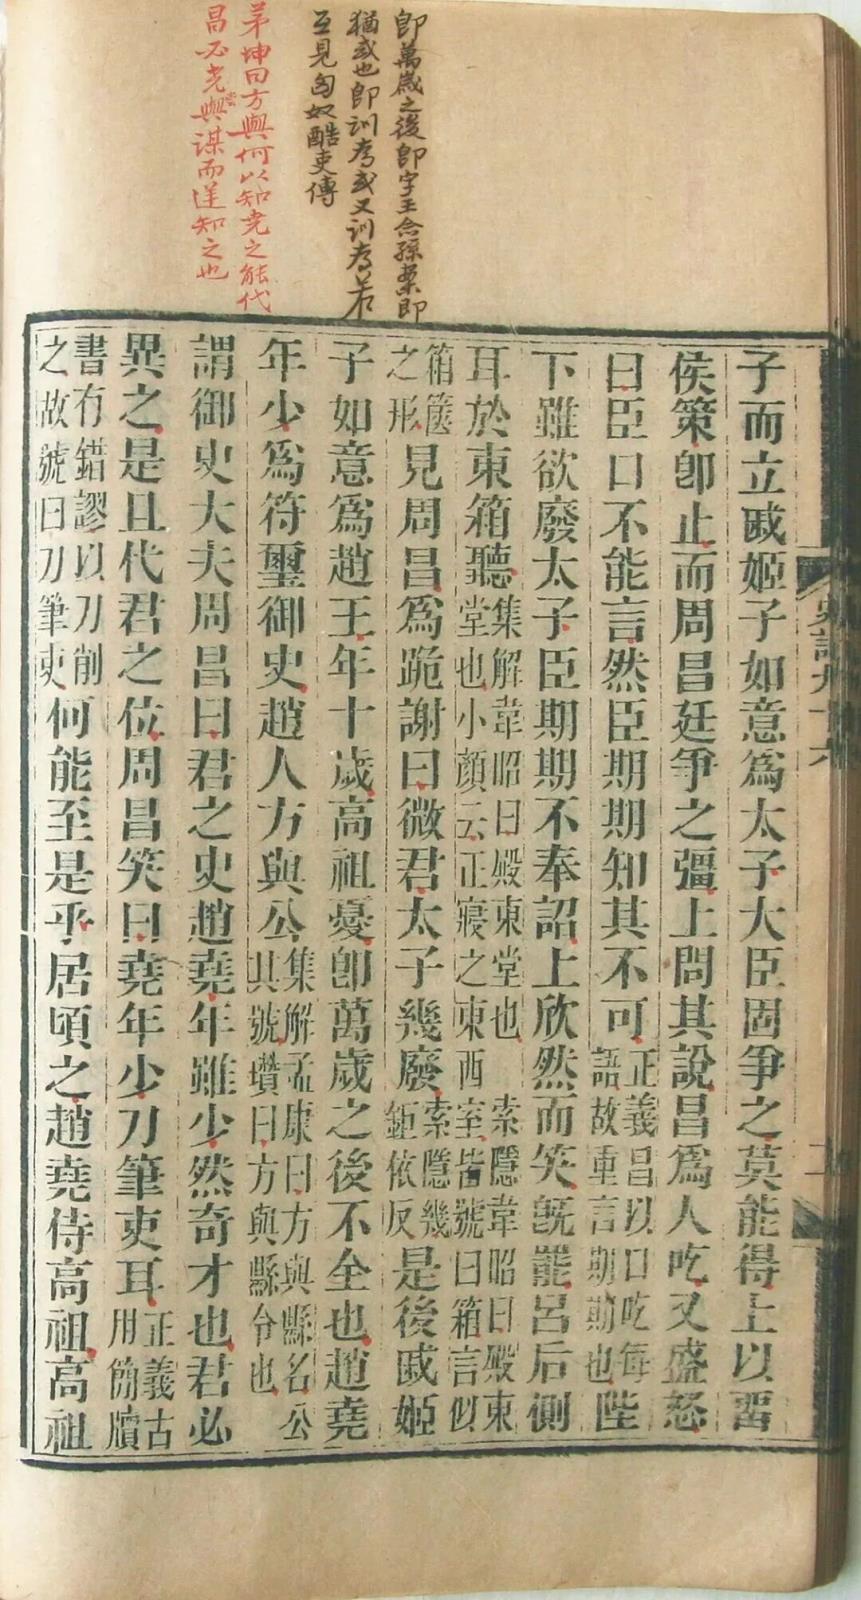 即萬歲之後即字王念孫案即
猶或也即訓為或又訓為若
互見匈奴酷吏傳
茅坤曰方與何以知堯之能代
昌必堯嘗與謀而逆知之也
史記九十六
子而立戚姬子如意爲太子大臣固爭之莫能得上以留
侯策卽止而周昌廷爭之彊上問其說昌爲人吃又盛怒
曰臣口不能言然臣期期知其不可正義昌以口吃每語故重言期期也陛
下雖欲廢太子臣期期不奉詔上欣然而笑旣罷呂后側
耳於東箱聽集解韋昭曰殿東堂也索隱韋昭曰殿東堂也小顏云正寢之東西室皆號曰箱言似
箱篋之形見周昌爲跪謝曰微君太子幾廢索隱幾鉅依反是後戚姬
子如意爲趙王年十歲高祖憂卽萬歲之後不全也趙堯
年少爲符璽御史趙人方與公集解孟康曰方與縣名公其號瓚曰方與縣令也
謂御史大夫周昌曰君之史趙堯年雖少然奇才也君必
異之是且代君之位周昌笑曰堯年少刀筆吏耳正義古用簡牘
書有錯謬以刀削之故號曰刀筆吏何能至是乎居頃之趙堯侍高祖高祖